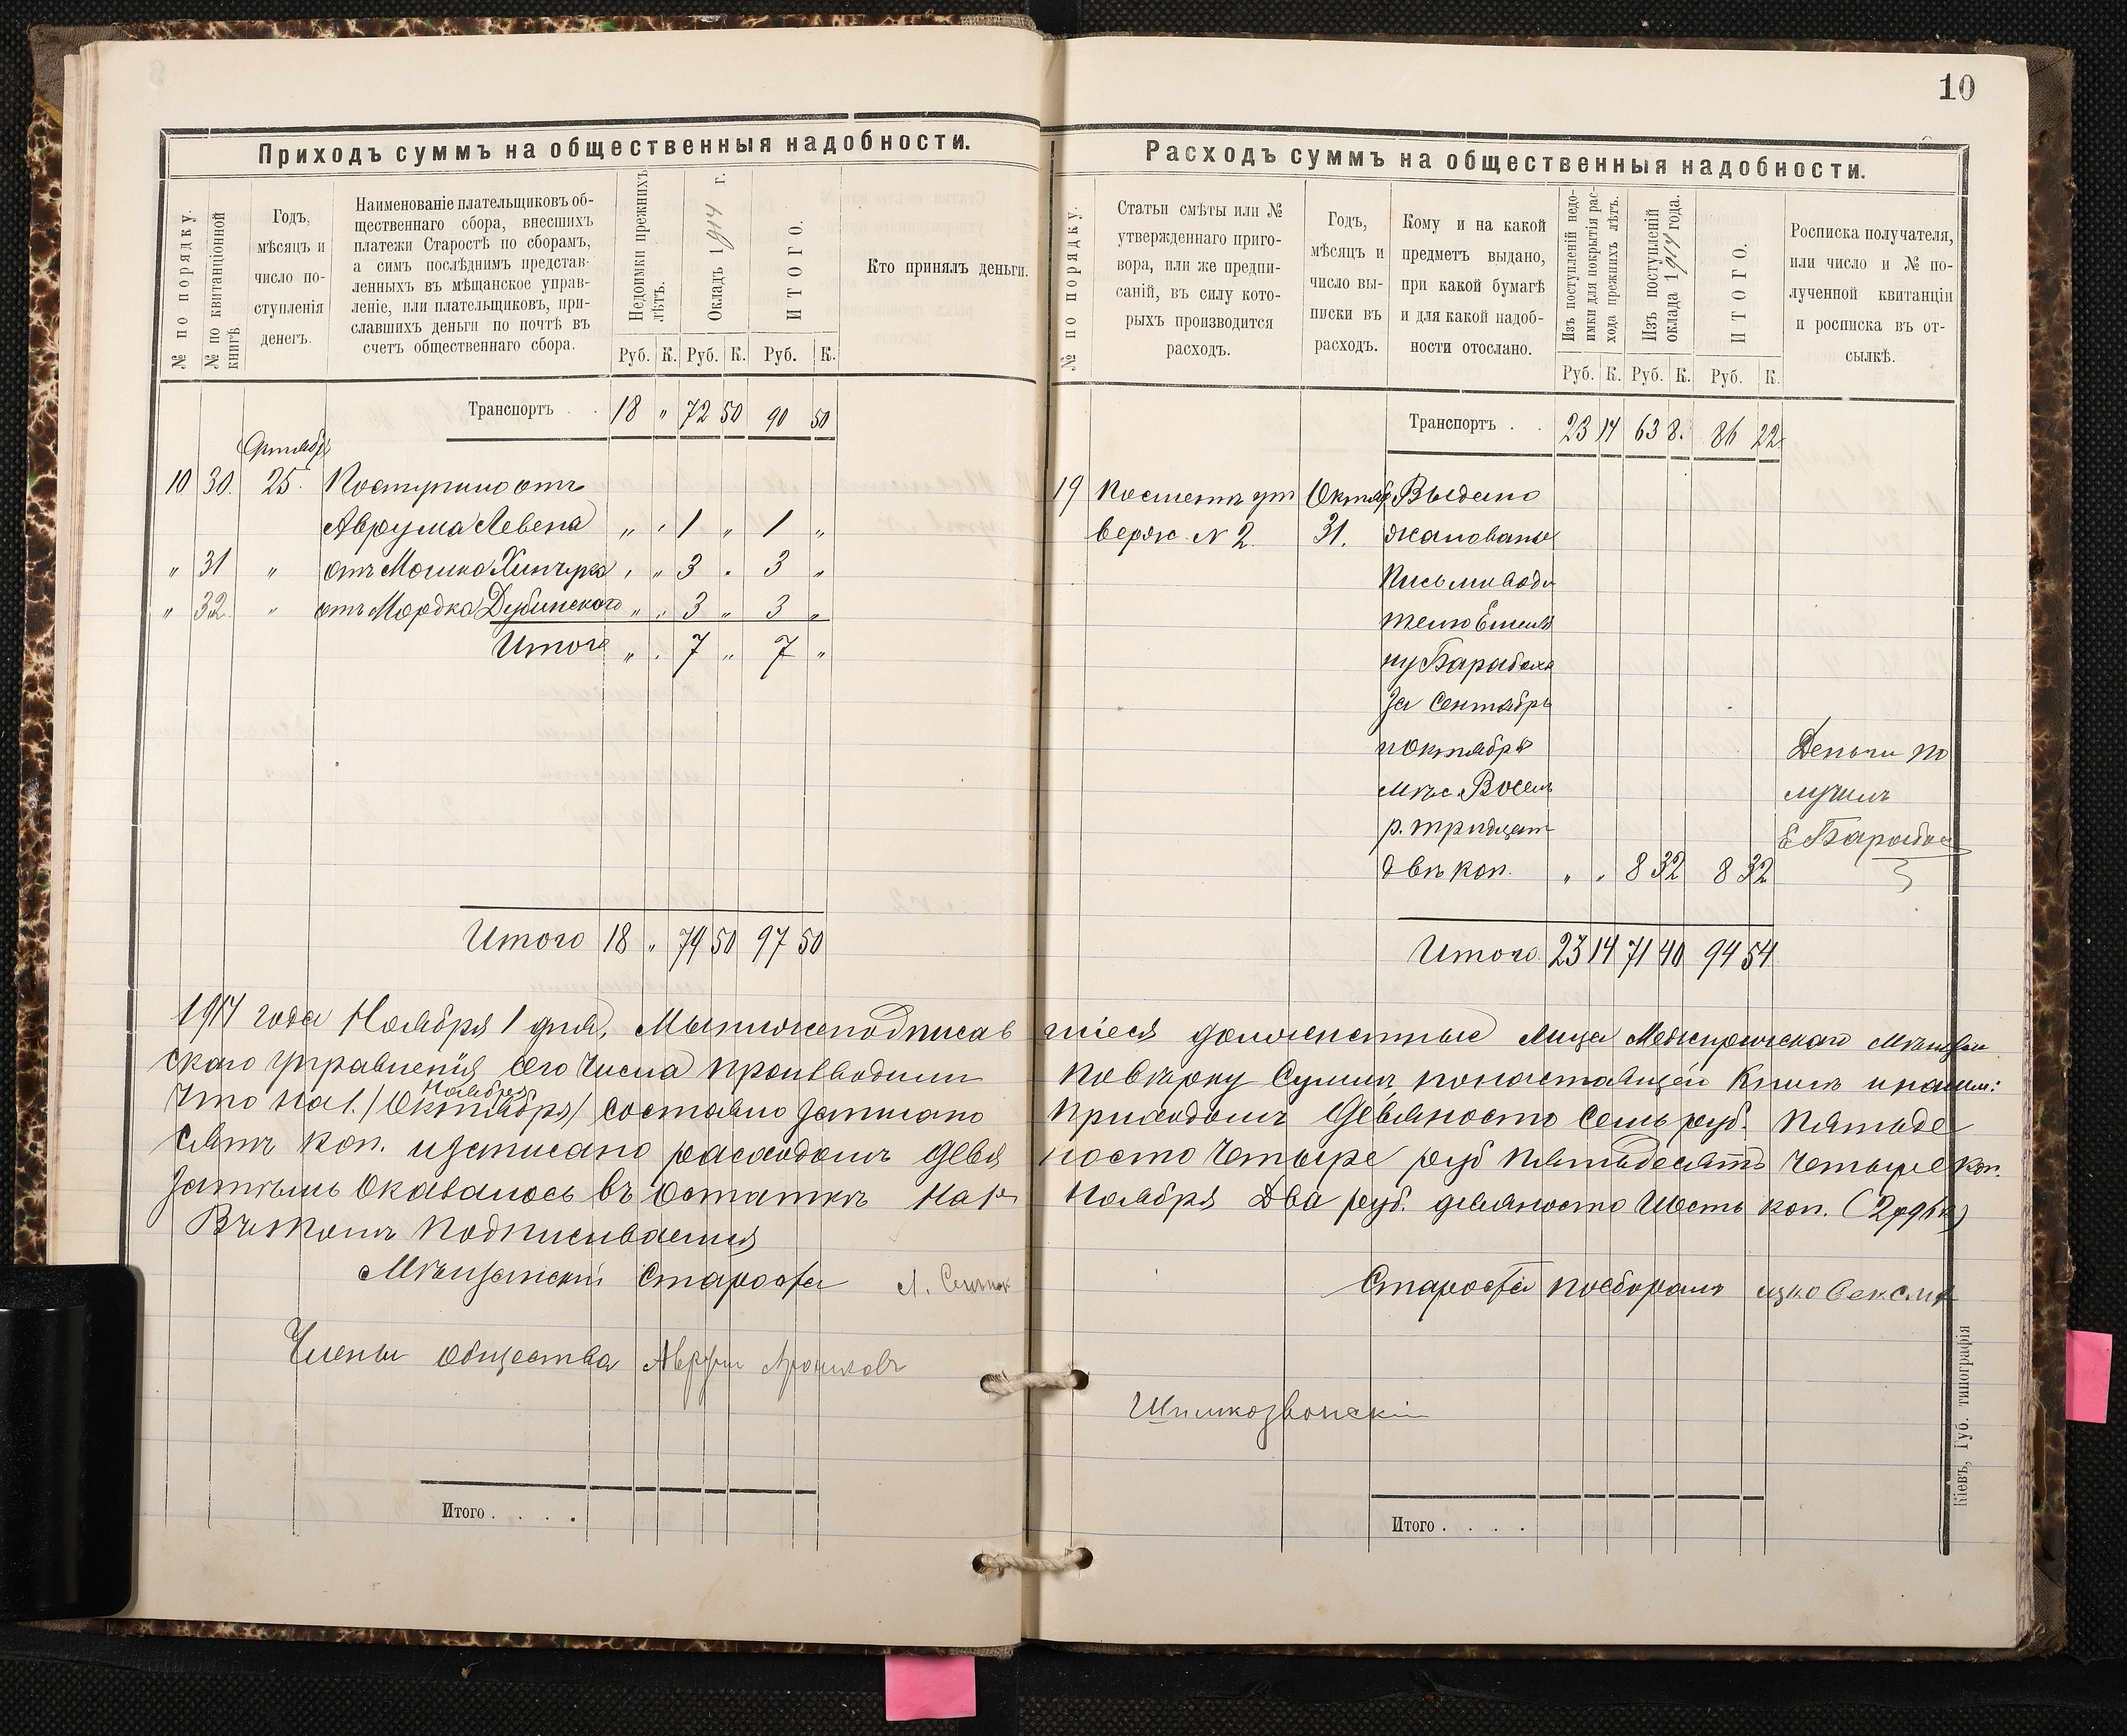 10
Приходъ суммъ на общественныя надобности.
№ по порядку.
№ по квитанціонной книгѣ
Годъ,
мѣсяцъ и
число по-
ступленія
денегъ.
Наименованіе плательщиковъ об-
щественнаго сбора, внесшихъ
платежи Старостѣ по сборамъ,
а симъ послѣднимъ представ-
ленныхъ въ мѣщанское управ-
леніе, или плательщиковъ, при-
славшихъ деньги по почтѣ въ
счетъ общественнаго сбора.
Недоимки прежнихъ
лѣтъ.
Окладъ 1914 г.
ИТОГО.
Кто принялъ деньги.
Руб. К. Руб. К. Руб. К.
Транспортъ . . 18 „ 72 50 90 50
10 30. 25. Поступило отъ
Аврума Левена „ „ 1 „ 1 „
„ 31 „ отъ Мошко „ „ 3 „ 3 „
„ 32 „ отъ Мордка Дубинскаго „ „ 3 „ 3 „
Итого „ „ 7 „ 7 „
Итого 18 „ 79 50 97 50
Расходъ суммъ на общественныя надобности.
№ по порядку.
Статьи смѣты или №
утвержденнаго приго-
вора, или же предпи-
саній, въ силу кото-
рыхъ производится
расходъ.
Годъ,
мѣсяцъ и
число вы-
писки въ
расходъ.
Кому и на какой
предметъ выдано,
при какой бумагѣ
и для какой надоб-
ности отослано.
Изъ поступленій недо-
имки для покрытія рас-
хода прежнихъ лѣтъ.
Изъ поступленій
оклада 1914 года.
ИТОГО.
Росписка получателя,
или число и № по-
лученной квитанціи
и росписка въ от-
сылкѣ.
Руб. К. Руб. К. Руб. К.
Транспортъ . . 23 14 63 8. 86 22
19 По смѣтѣ ут Октяб Выдано
верж. N 2. 31. жалованье
Письмоводи
телю Емелья
ну Барабаха
За Сентябрь
и Октябрь Деньги по
мѣс. Восемь лучилъ
р. тридцать Е Барабах
двѣ коп. „ „ 8 32 8 32
Итого 23 14 71 40 94 54
1914 года Ноября 1 дня, Мы нижеподписав шіеся должностные лица Межиричскаго Мѣщан
скаго управленія сего числа производили повѣрку суммъ по настоящей книгѣ и нашли:
Что на 1. /Октября/ Ноября составло записано приходомъ Девяносто семь руб. пятьде
сятъ коп. и записано расходомъ девя носто четыре руб пятьдесятъ четыре коп.
Затѣмъ оказалось въ остаткѣ на 1е Ноября Два руб. девяносто шесть коп. (2р96к)
Въ томъ подписываемся
Мѣщанскій Староста
Староста по сборамъ
Члены общества Аврум
Шимкозвонскій
Итого . . . .
Итого . . . .
Кіевъ, Губ. типографія